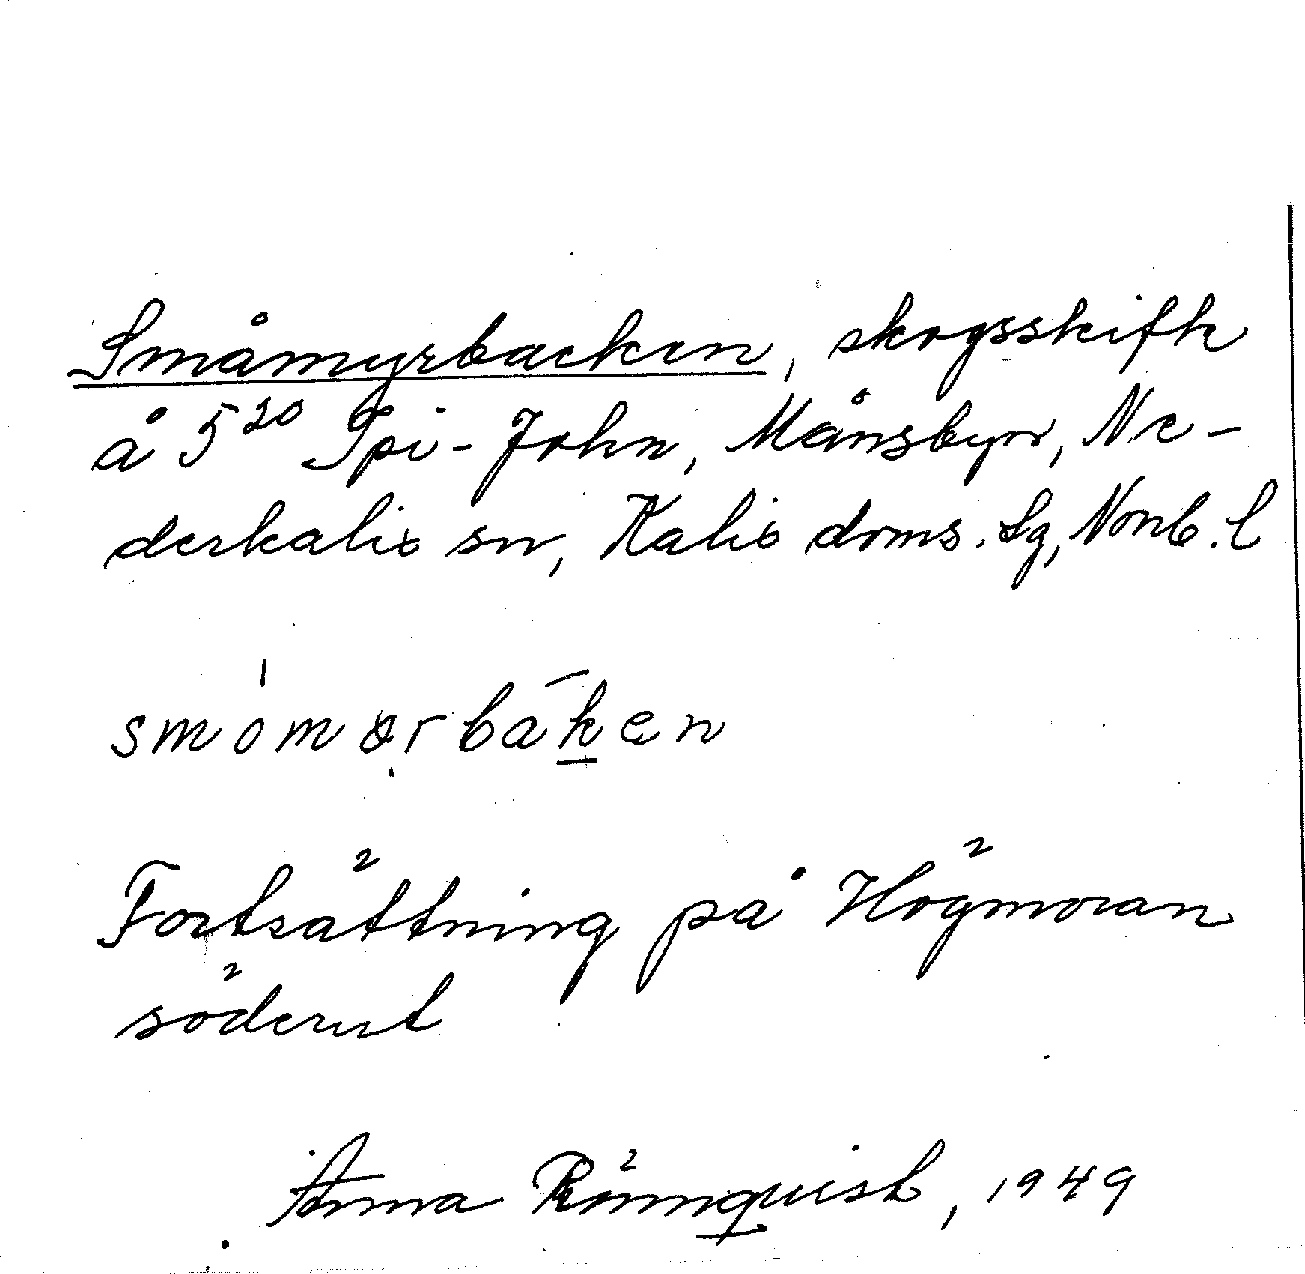 Småmyrbacken, skogsskifte
å 5²⁰ Spi-John, Månsbyn, Ne-
derkalix sn, Kalix doms. lg, Norrb. l
smómörbāken
Fortsättning på Högmoran
söderut
Anna Rönnquist, 1949